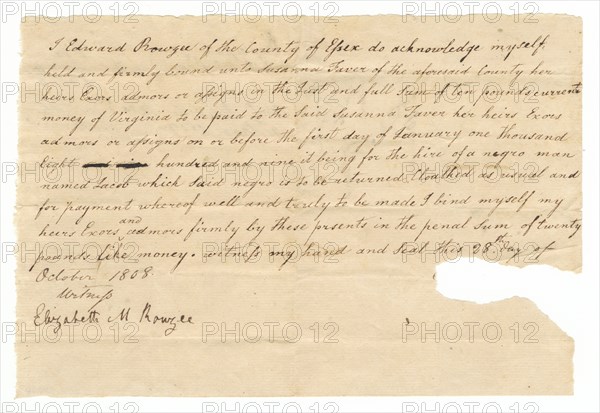 I Edward Rowzee of the County of Essex do acknowledge myself
held and firmly bound unto Susanna Faver of the aforesaid County her
heirs Exors admors or assigns in the Just and full Sum of ten pounds current
money of Virginia to be paid to the Said Susanna Faver her heirs Exors
admors or assigns on or before the first day of January one thousand
Eight hundred and nine it being for the hire of a negro man
named Jacob which Said negro is to be returned Cloathed as usual and
for payment whereof well and truly to be made I bind myself my
heirs Exors and admors firmly by these prsents in the penal Sum of twenty
pounds like money. witness my hand and Seal this 28th day of
October 1808.
Witness
Elizabeth M Rowzee
PHOTO12